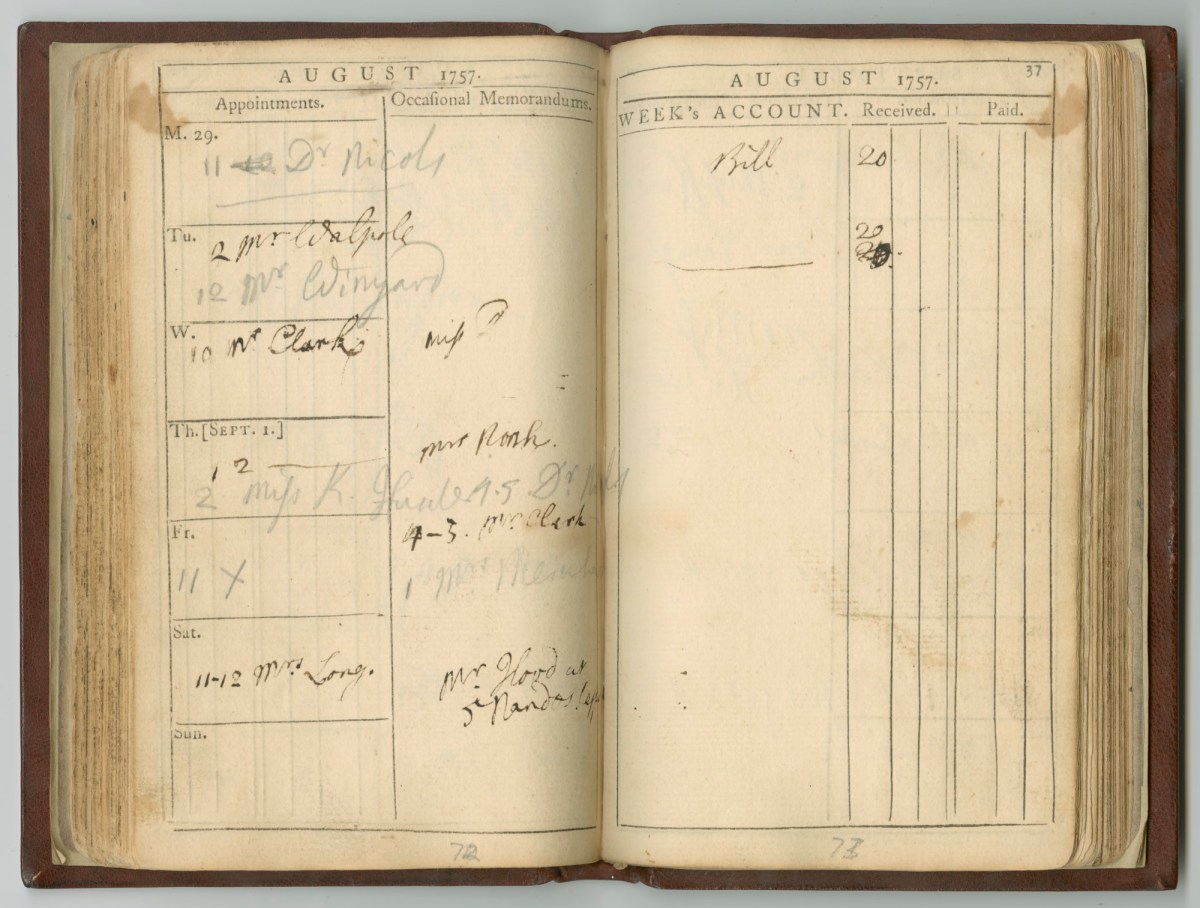 AUGUST 1757.
Appointments.
Occaſional Memorandums.
M. 29.
11 Dr Nicols
Tu.
2 Mr Walpole
12 Mr Winyard
W.
10 Mr Clark
Miſs P
Th. [SEPT. 1.]
1 2
Mrs
2 Miſs K. 4-5 Dr
Fr.
4-5. Mr Clark
11 X
1 Mrs
Sat.
11-12 Mrs Long.
Mr Hood at
5
Sun.
72
AUGUST 1757.
37
WEEK's ACCOUNT.
Received.
Paid.
Bill 20
20
73